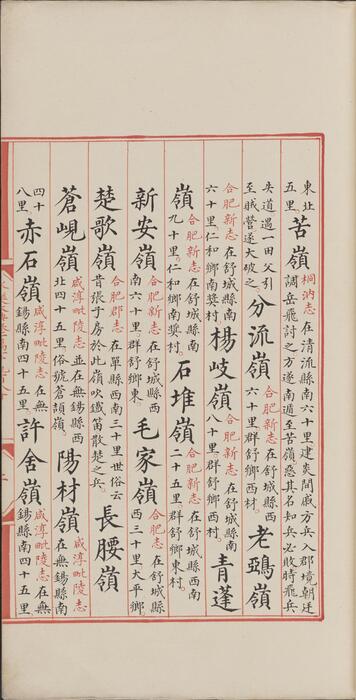 東北
五里
苦嶺
桐汭志在清流縣南六十里建炎間戚方兵入郡境朝廷
調岳飛討之方遂南遁至苦嶺惡其名知兵必敗時飛兵
失道遇一田父引
至賊營遂大破之
分流嶺
合肥新志在舒城縣西
六十里群舒鄉西村
老鵶嶺
合肥新志在舒城縣南
六十里仁和鄉南獎村
楊歧嶺
合肥新志在舒城縣南
八十里群舒鄉西村
青蓬
嶺
合肥新志在舒城縣南
九十里仁和鄉南獎村
石堆嶺
合肥新志在舒城縣西南
二十五里群舒鄉東村
新安嶺
合肥新志在舒城縣西
南六十里群舒鄉東
毛家嶺
合肥新志在舒城縣
西三十里大平鄉
楚歌嶺
合肥郡志在單縣西南三十里世俗云
昔張子房於此嶺吹鐵笛散楚之兵
長腰嶺
蒼峴嶺
咸淳毗陵志並在無錫縣西
北四十五里俗號蒼頡嶺
陽材嶺
咸淳毗陵志
在無錫縣南
四十
八里
赤石嶺
咸淳毗陵志在無
錫縣南四十五里
許舍嶺
咸淳毗陵志在無
錫縣南四十五里